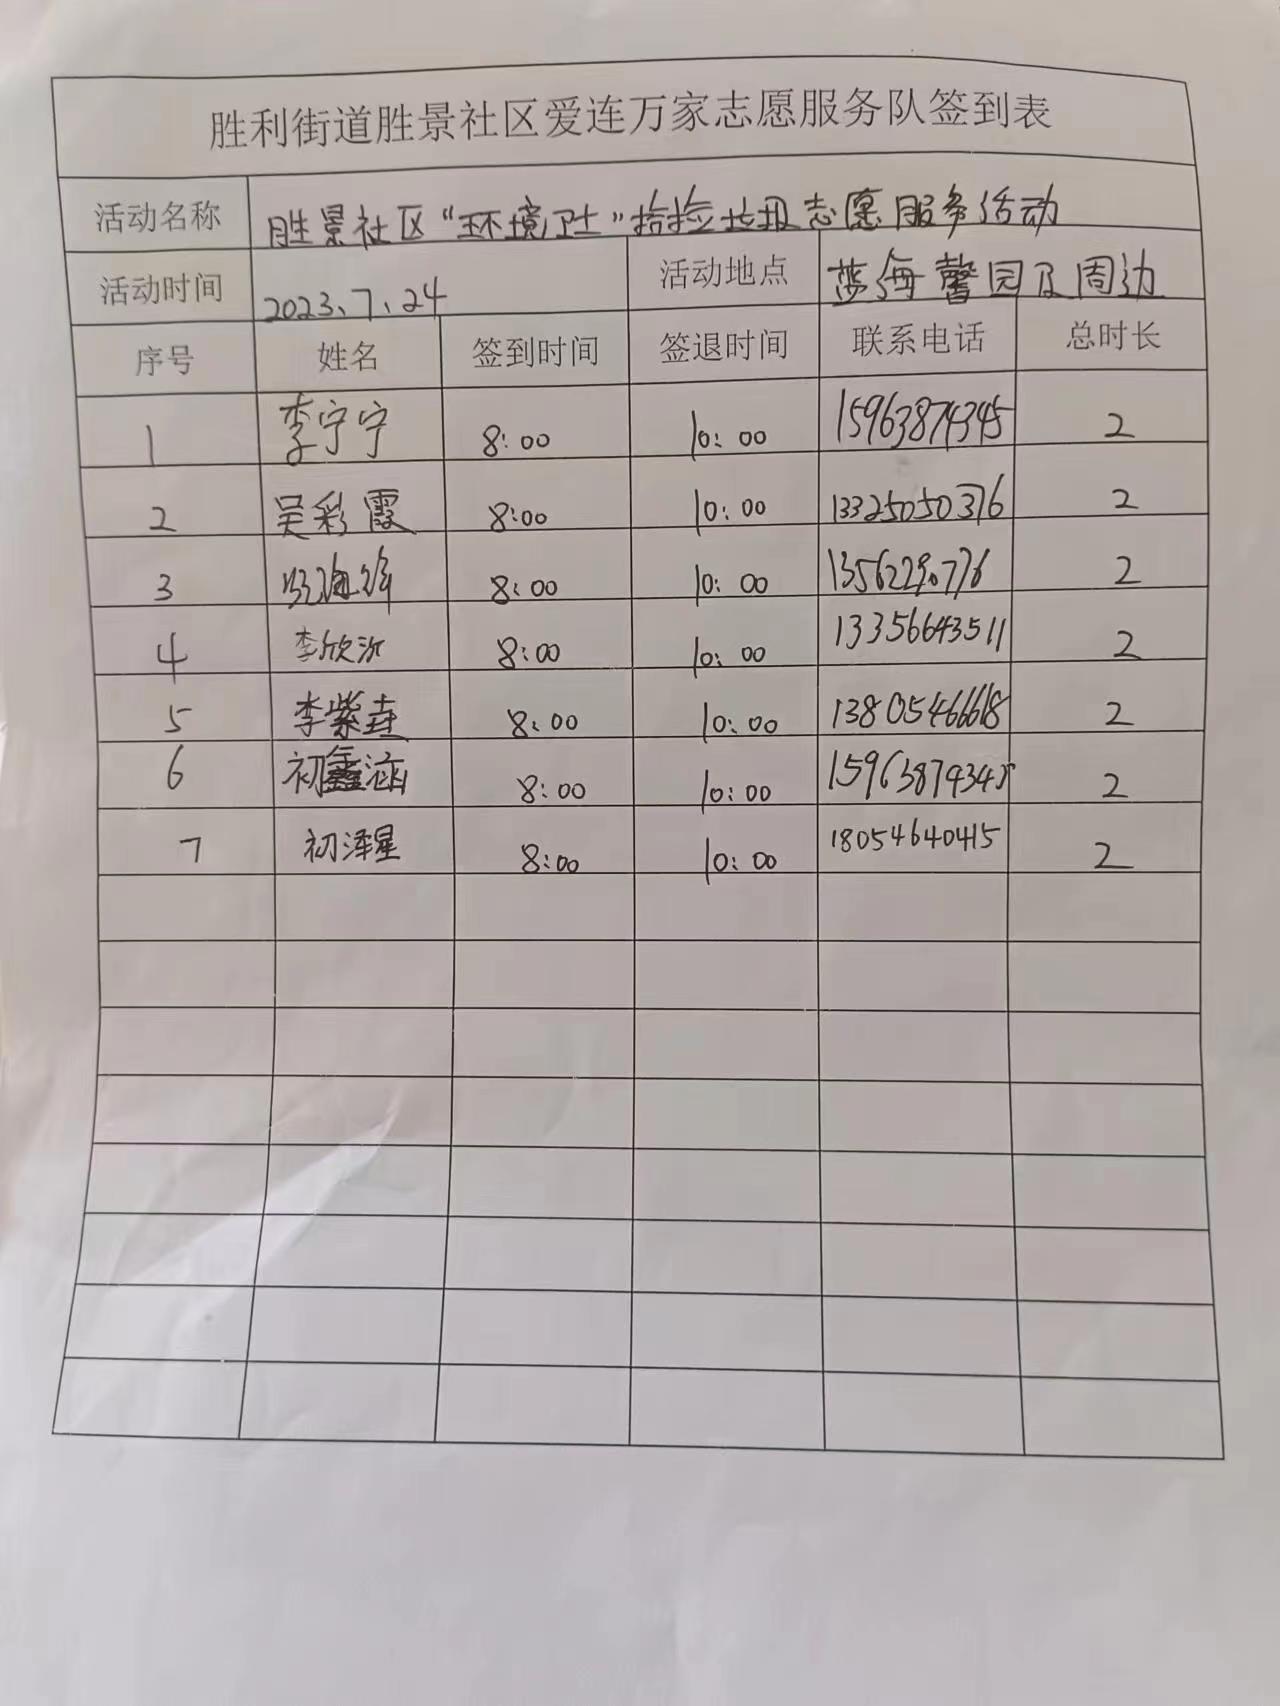 胜利街道胜景社区爱连万家志愿服务队签到表
活动名称 胜景社区“环境卫士”捡捡垃圾志愿服务活动
活动时间 2023、7、24 活动地点 蓝海馨园及周边
序号 姓名 签到时间 签退时间 联系电话 总时长
1 李宁宁 8:00 10:00 15963874345 2
2 吴彩霞 8:00 10:00 13325050376 2
3 8:00 10:00 2
4 李欣 8:00 10:00 13356643511 2
5 李紫垚 8:00 10:00 13805466618 2
6 初鑫涵 8:00 10:00 15963874345 2
7 初泽星 8:00 10:00 18054640415 2